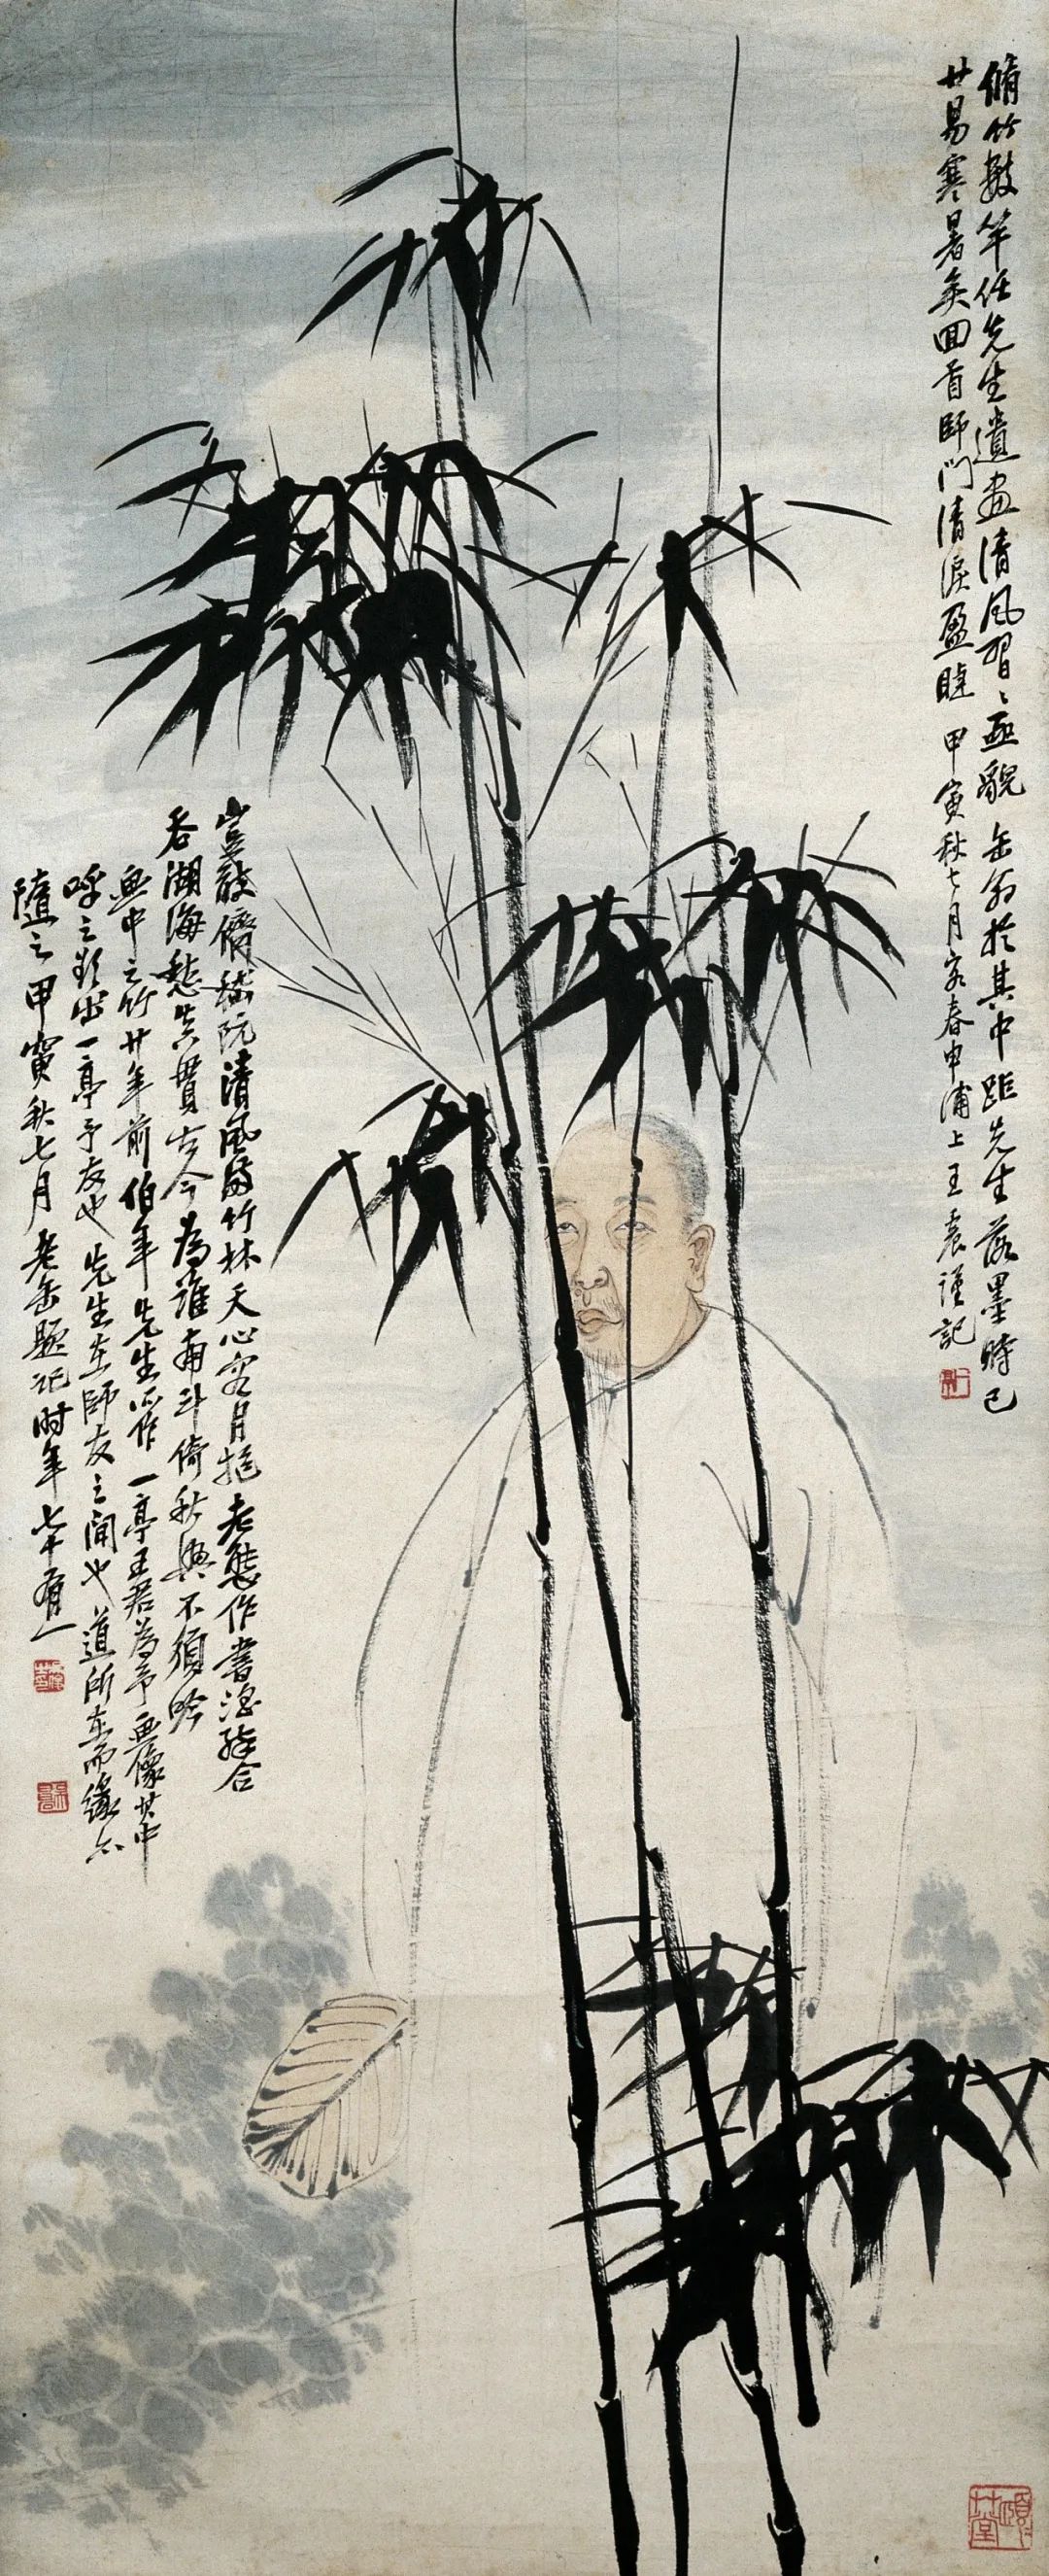 脩竹數竿任先生遺畫清風習〻亟貌缶翁於其中距先生落墨時已
廿易寒暑矣回首師門清淚盈睫 甲寅秋七月客春申浦上王震謹記
豈敢儕嵇阮清風滿竹林天心寒月抱老態作書淫絳合
吞湖海愁真貫古今為誰南斗倚秋興不須吟
畫中之竹廿年前伯年先生所作一亭王君為予畫像其中
呼之欲出一亭予友也先生在師友之間也道所在而緣亦
隨之甲寅秋七月老缶題記時年七十有一